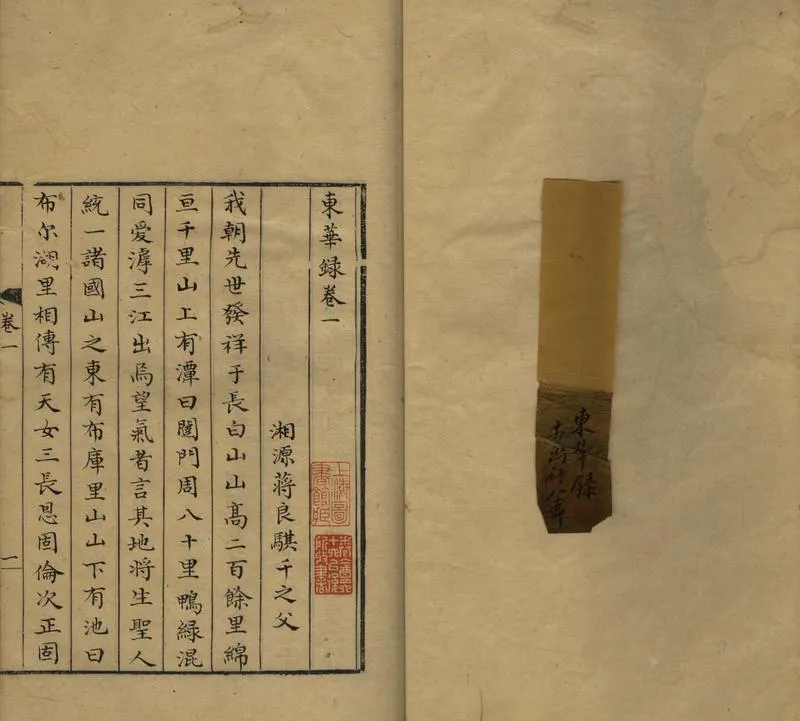 東華録
東華録卷一
上海圖
書館藏
湘源蔣良騏千之父
我朝先世發祥于長白山山高二百餘里綿
亘千里山上有潭曰闥門周八十里鴨緑混
同愛滹三江出焉望氣者言其地將生聖人
統一諸國山之東有布庫里山山下有池曰
布尔湖里相傳有天女三長恩固倫次正固
卷一
一